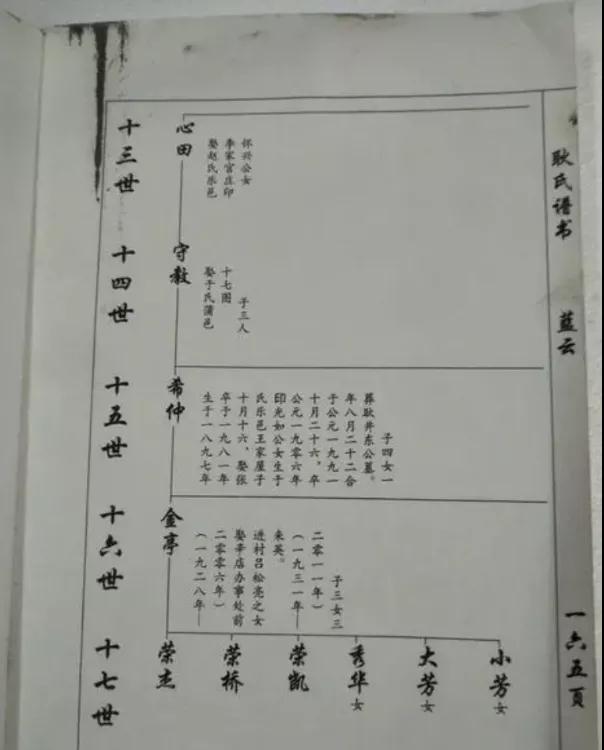 十三世
心田
娶赵氏乐邑
李家官庄印
怀兴公女
十四世
守教
娶于氏蒲邑
十七图
子三人
十五世
希仲
生于一八九七年
卒于一九八一年
十月十六，娶张
氏乐邑王家屋子
印光如公女生于
公元一九零六年
十月二十六，卒
于公元一九九一
年八月二十二合
葬耿井东公墓。
子四女一
十六世
金亭
（一九二八年—
二零零六年）
娶辛店办事处前
进村吕松亮之女
来英。
（一九三一年—
二零一一年）
子三女三
十七世
荣杰
荣桥
荣凯
秀华女
大芳女
小芳女
耿氏谱书
蓝云
一六五頁